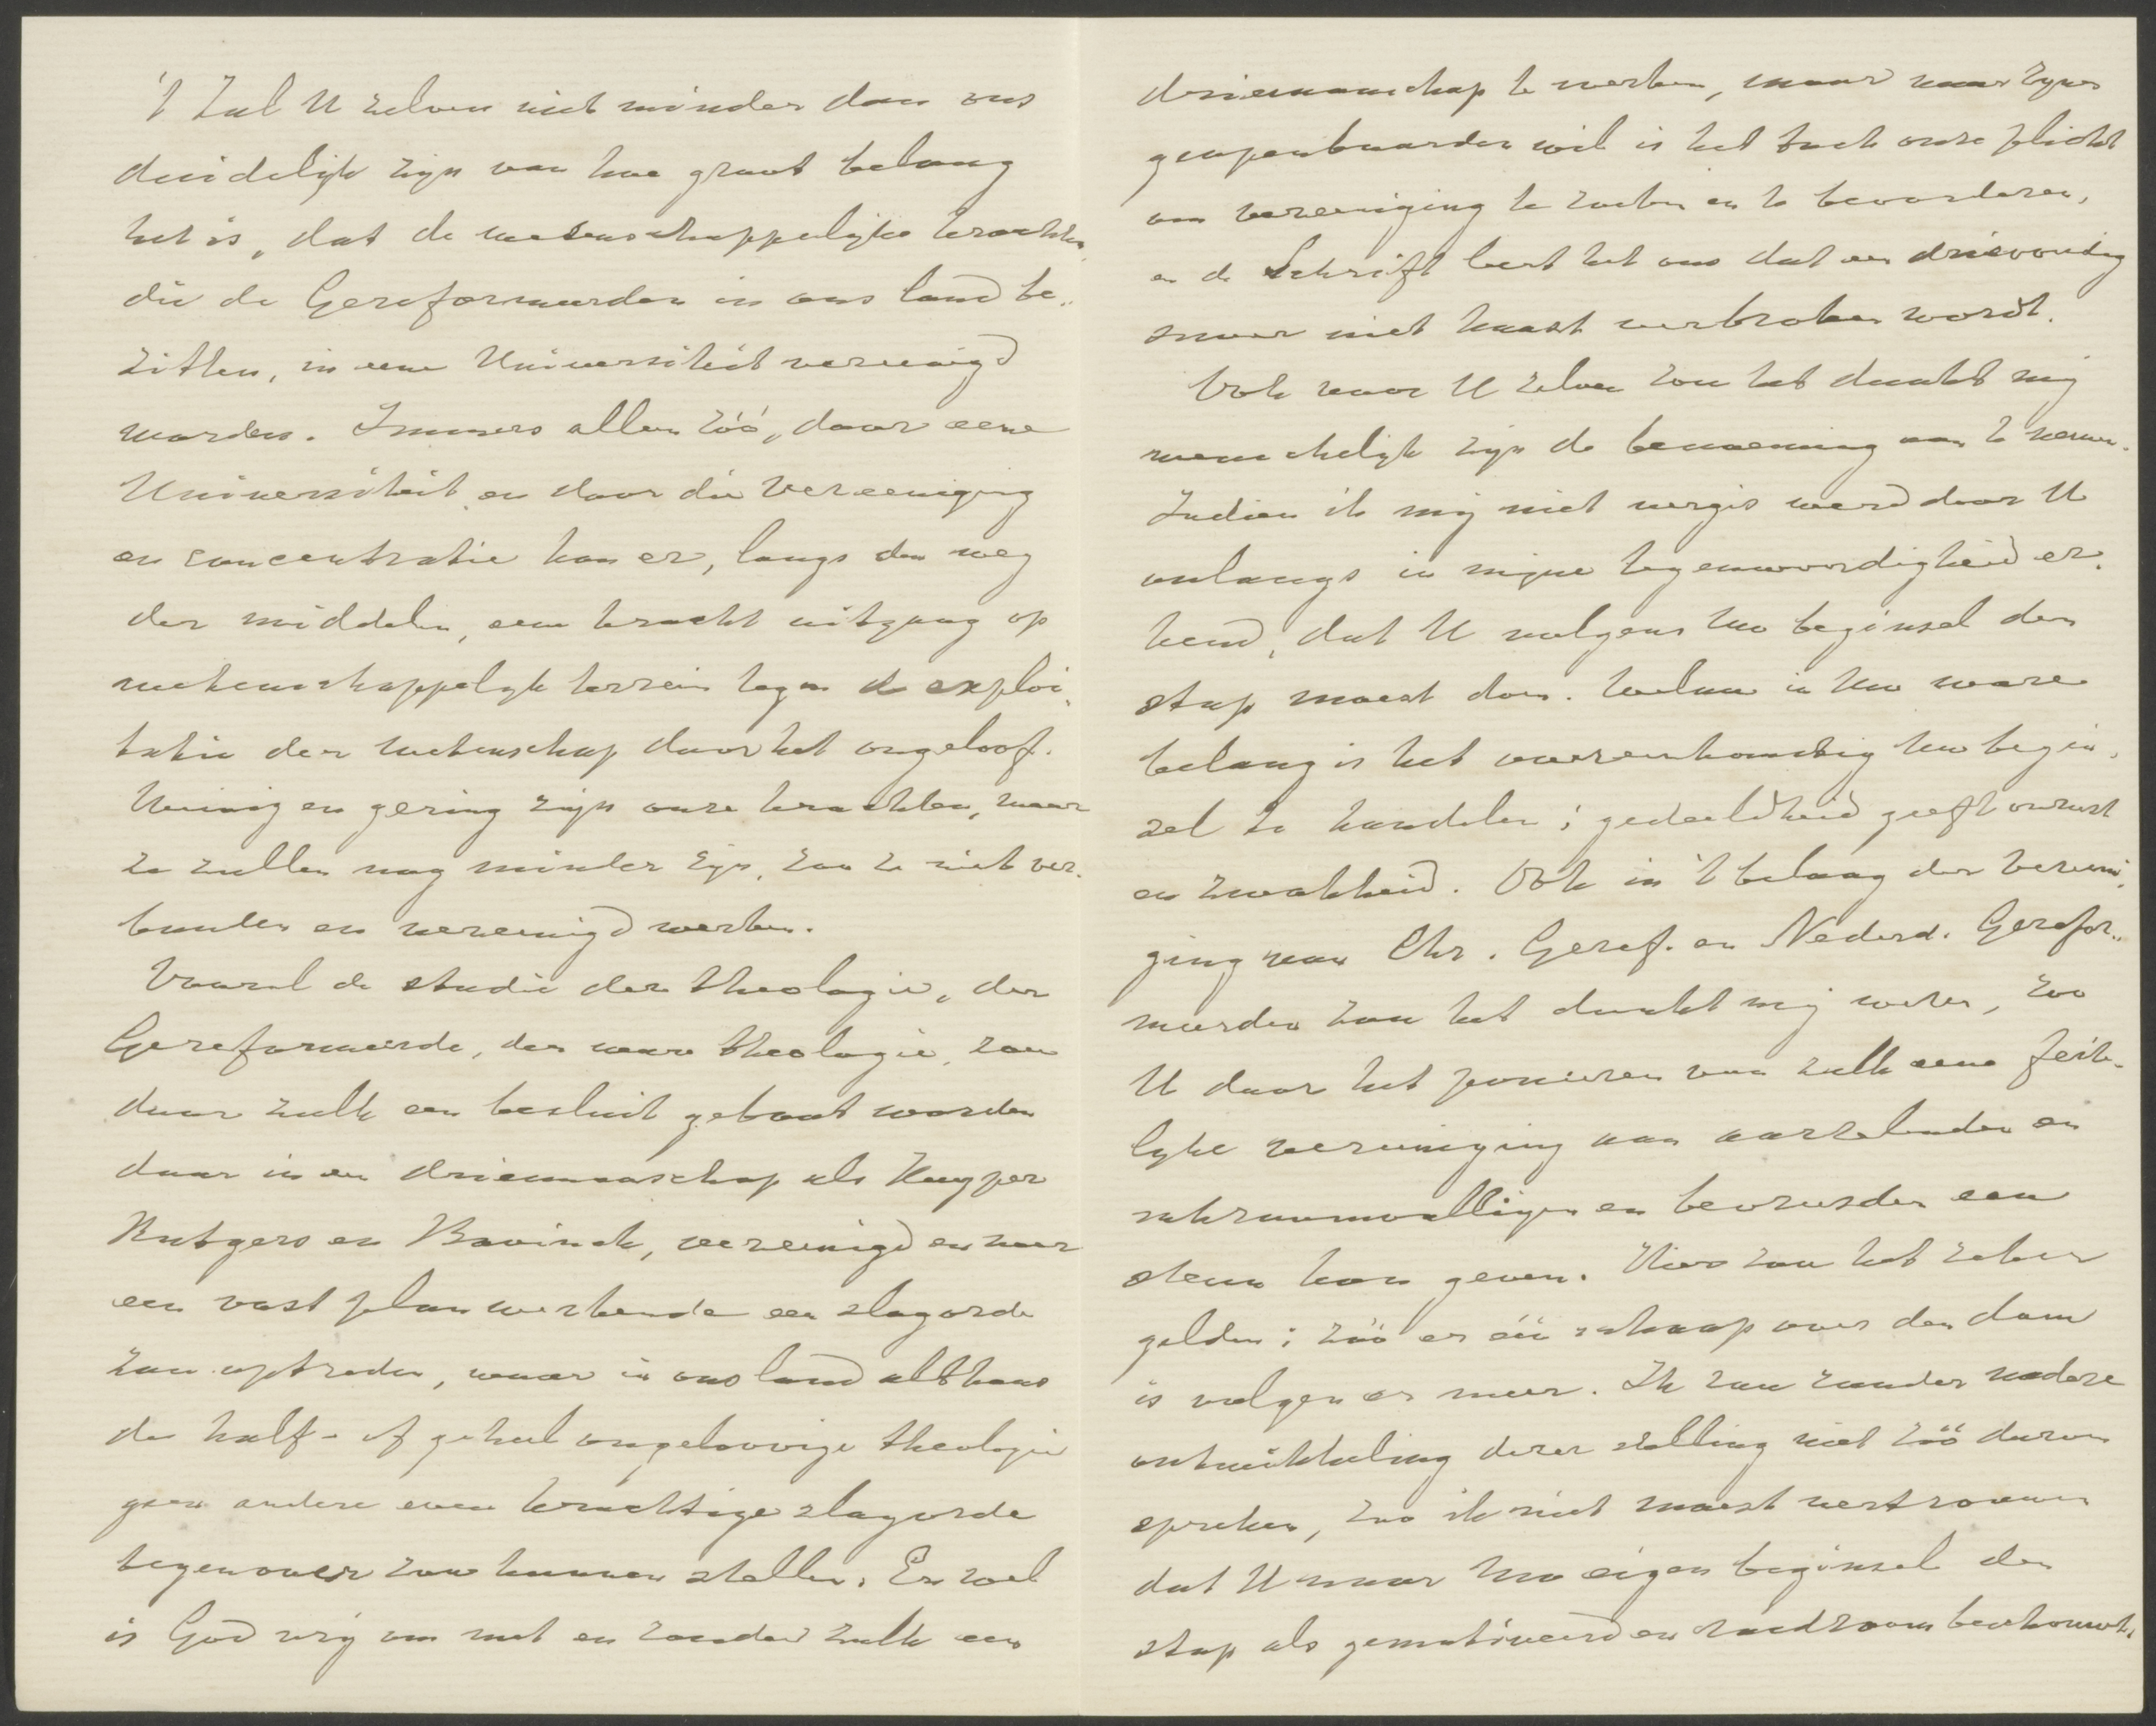 't Zal U zelven niet minder dan ons
duidelijk zijn van hoe groot belang
het is, dat de wetenschappelijke krachten,
die de Gereformeerden in ons land be-
zitten, in eene Universiteit vereenigd
worden. Immers alleen zóó, door eene
Universiteit en door die vereeniging
en concentratie kan er, langs den weg
der middelen, eene kracht uitgaan op
wetenschappelijk terrein tegen de exploi-
tatie der wetenschap door het ongeloof.
Weinig en gering zijn onze krachten, maar
ze zullen nog minder zijn, zoo ze niet ver-
bonden en vereenigd werken.
Vooral de studie der theologie, der
Gereformeerde, der ware theologie, zou
door zulk een besluit gebaat worden
daar in een driemanschap als Kuyper
Rutgers en Bavinck, vereenigd en naar
een vast plan werkende een slagorde
zou optreden, waar in ons land althans
de half- of geheel ongeloovige theologie
geen andere even krachtige slagorde
tegenover zou kunnen stellen. En wel
is God vrij om met en zonder zulk een
driemanschap te werken, maar naar Zijnen
geopenbaarden wil is het toch onze plicht
om vereeniging te zoeken en te bevorderen,
en de Schrift leert het ons dat een drievoudig
snoer niet haast verbroken wordt.
Ook voor U zelven zou het dunkt mij
wenschelijk zijn de benoeming aan te nemen.
Indien ik mij niet vergis werd door U
onlangs in mijne tegenwoordigheid er-
kend, dat U volgens Uw beginsel den
stap moest doen. Welnu in Uw ware
belang is het overeenkomstig Uw begin-
sel te handelen; gedeeldheid geeft onrust
en zwakheid. Ook in 't belang der vereeni-
ging van Chr. Geref. en Nederd. Gerefor-
meerden zou het dunkt mij wezen, zoo
U door het poneeren van zulk eene feite-
lijke vereeniging aan aarzelenden en
schroomvalligen en bevreesden een
steun kon geven. Hier zou het zeker
gelden: zóó er één schaap over den dam
is volgen er meer. Ik zou zonder nadere
ontwikkeling dezer stelling niet zóó durven
spreken, zoo ik niet moest vertrouwen
dat U naar Uw eigen beginsel den
stap als gemotiveerd en raadzaam beschouwt.